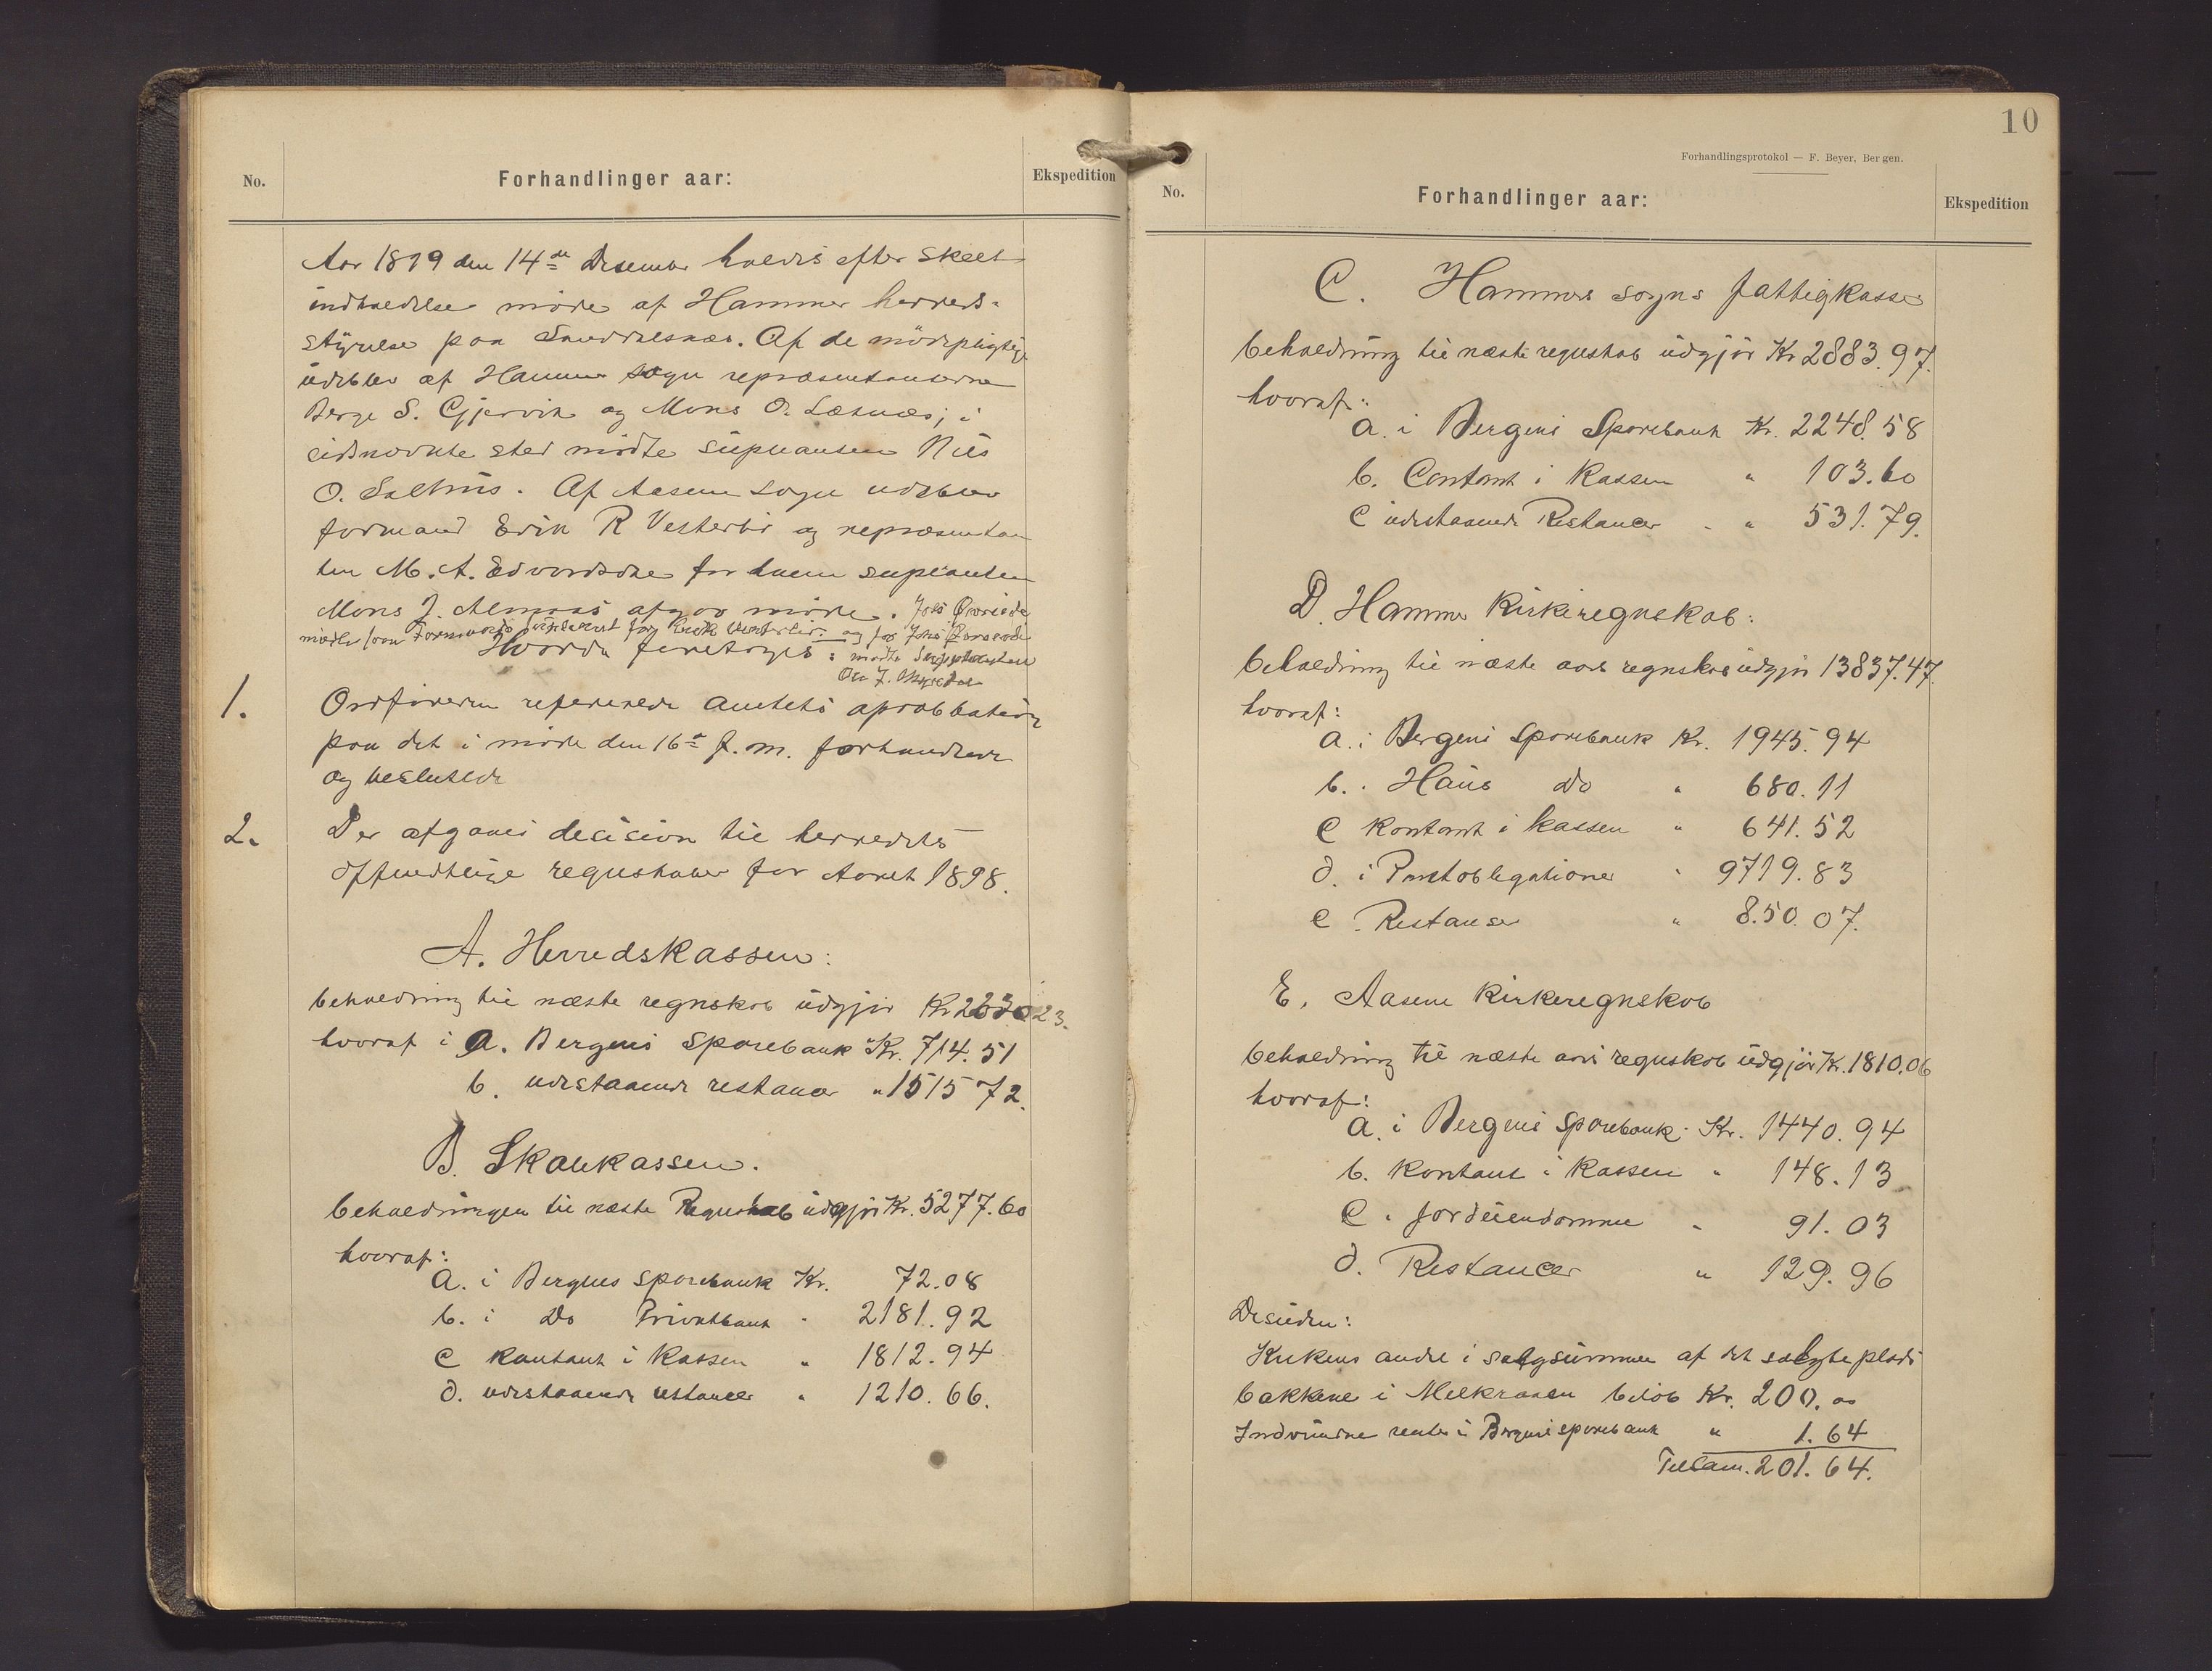 No.
Forhandlinger aar:
Ekspedition
Aar 1899 den 14de Desember holdes efter skeet
indkaldelse møde af Hammer herreds-
styrelse paa Smørdalsnæs. Af de mødepligtige
udeblev af Hammer sogn repræsentanterne
Berge S. Gjervik og Mons O. Letnes; i
sidsnevnte sted mødte supleanten Nils
O. Salhus. Af Aasene sogn udeblev
formand Erik R Vesterlid og repræsentan
ten M. A. Edvardsdal for hvem supleanten
Mons J. Almaas afgav møde. Johs Øvrevide
mødte som Formands supleant for Erik Vesterlid og for Johs Øvrevide
Hvorda foretoges: mødte Suppleanten
Ole J.
1. Ordføreren refererede amtets aprobbation
paa det i møde den 16de f.m. forhandlede
og besluttede
2. Der afgaves decision til herredets
offendtlige regnskaber for Aaret 1898.
A. Herredskassen:
behaldning til næste regnskab udgjør Kr 2230.23.
hvoraf i a. Bergens Sparebank Kr. 714.51
b. udestaaende restancer " 1515 72.
B. Skolekassen.
behaldningen til næste Regnskab udgjør Kr. 5277.60
hvoraf:
a. i Bergens sparebank Kr. 72.08
b. i Do Privatbank " 2181.92
c kontant i Kassen " 1812.94
d. udestaaende restancer " 1210.66.
10
Forhandlingsprotokol — F. Beyer, Bergen.
No.
Forhandlinger aar:
Ekspedition
C. Hammers sogns fattigkasse
behaldning til næste regnskab udgjør Kr 2883.97.
hvoraf:
a. i Bergens Sparebank Kr. 2248.58
b. Contant i Kassen " 103.60
c udestaaende Restancer " 531.79.
D. Hammer Kirkeregnskab:
behaldning til næste aars regnskab udgjør 13837.47.
hvoraf:
a. i Bergens Sparebank Kr. 1945.94
b. " Haus do " 680.11
c kontant i kassen " 641.52
d. i Pantobligationer " 9719.83
e. Restanser " 8.50.07.
E. Aasene Kirkeregnskab
behaldning til næste aars regnskab udgjør Kr. 1810.06
hvoraf:
a. i Bergens Sparebank Kr. 1440.94
b. kontant i kassen " 148.13
c. jordeiendomme " 91.03
d. Restancer " 129.96
Desuden:
Kirkens andel i salgsummen af det solgte plads
bakkene i Melkraaen beløb Kr. 200.00
Indvundne renter i Bergens sparebank " 1.64
Tilsam. 201.64.